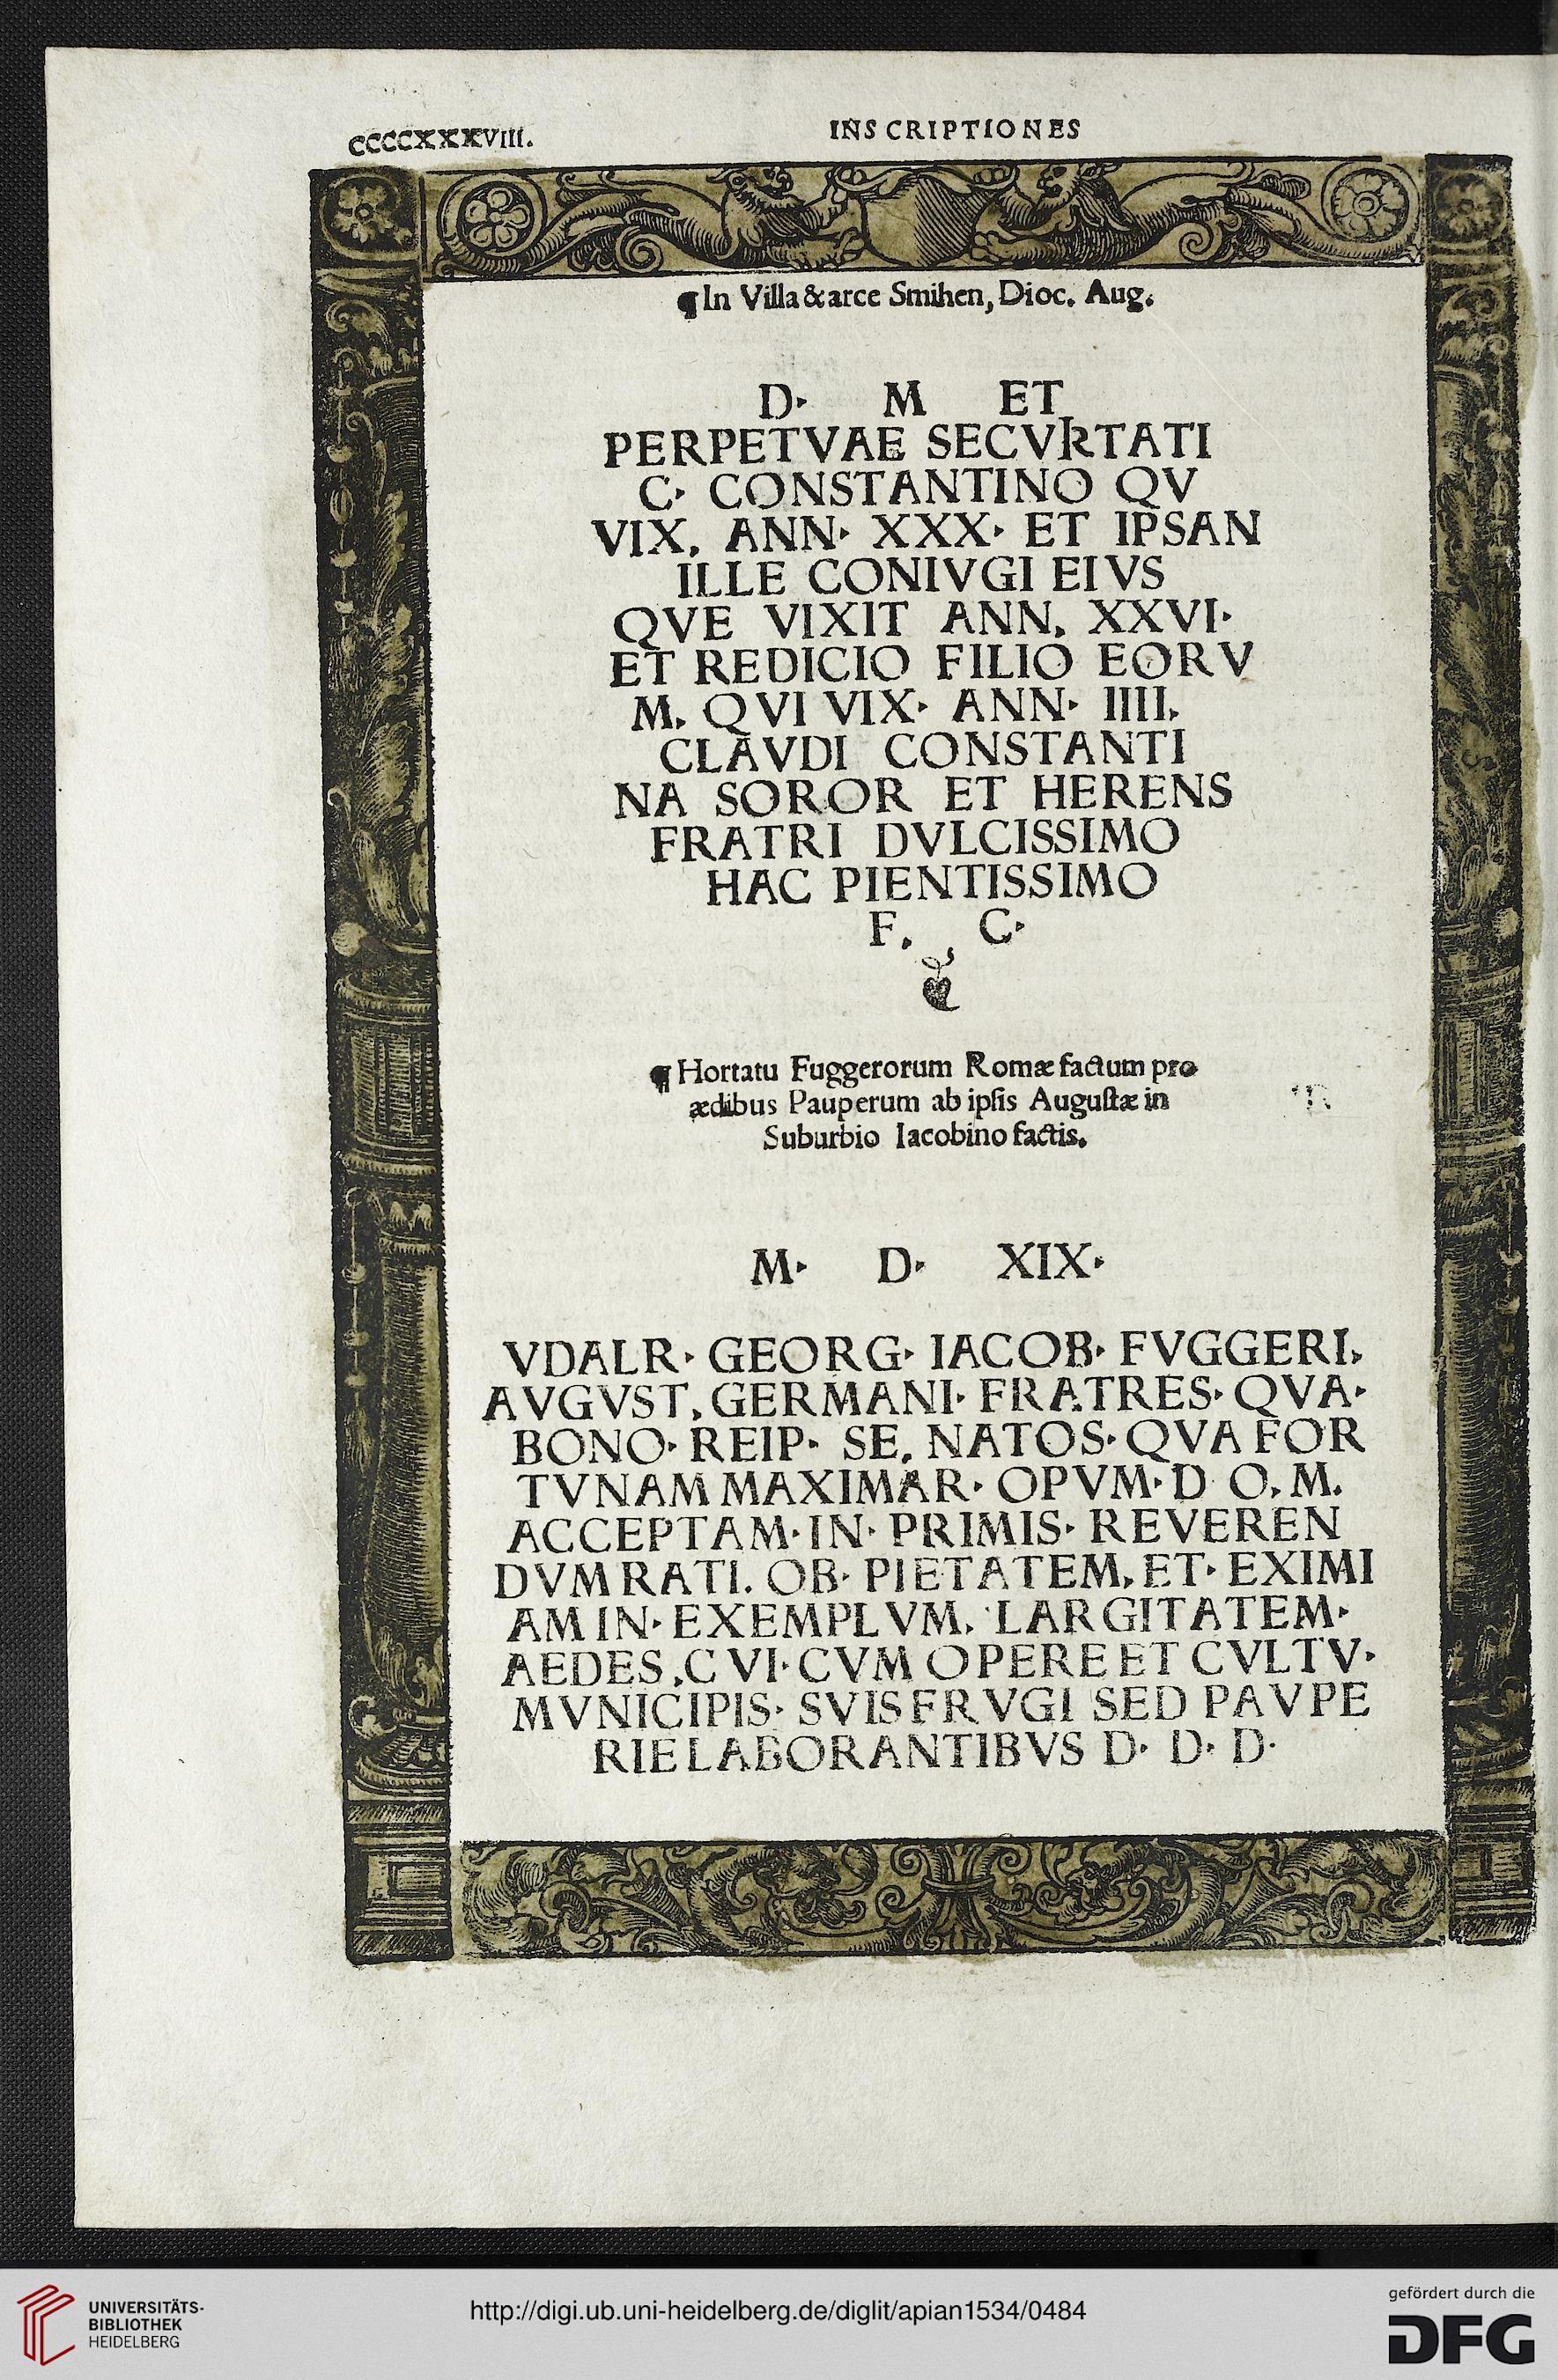 CCCCXXXVIII.
INSCRIPTIONES
¶In Villa & arce Smihen, Dioc. Aug.
D· M ET
PERPETVAE SECVRTATI
C· CONSTANTINO QV
VIX. ANN· XXX· ET IPSAN
ILLE CONIVGI EIVS
QVE VIXIT ANN. XXVI·
ET REDICIO FILIO EORV
M. QVI VIX· ANN· IIII.
CLAVDI CONSTANTI
NA SOROR ET HERENS
FRATRI DVLCISSIMO
HAC PIENTISSIMO
F. C·
¶Hortatu Fuggerorum Romæ factum pro
ædibus Pauperum ab ipsis Augustæ in
Suburbio Iacobino factis.
M· D· XIX·
VDALR· GEORG· IACOB· FVGGERI.
AVGVST. GERMANI· FRATRES· QVA·
BONO· REIP· SE. NATOS· QVA FOR
TVNAM MAXIMAR· OPVM· D O. M.
ACCEPTAM· IN· PRIMIS· REVEREN
DVM RATI. OB· PIETATEM. ET· EXIMI
AM IN· EXEMPLVM. LARGITATEM·
AEDES. CVI· CVM OPERE ET CVLTV·
MVNICIPIS· SVIS FRVGI SED PAVPE
RIE LABORANTIBVS D· D· D·
UNIVERSITÄTS-
BIBLIOTHEK
HEIDELBERG
http://digi.ub.uni-heidelberg.de/diglit/apian1534/0484
gefördert durch die
DFG